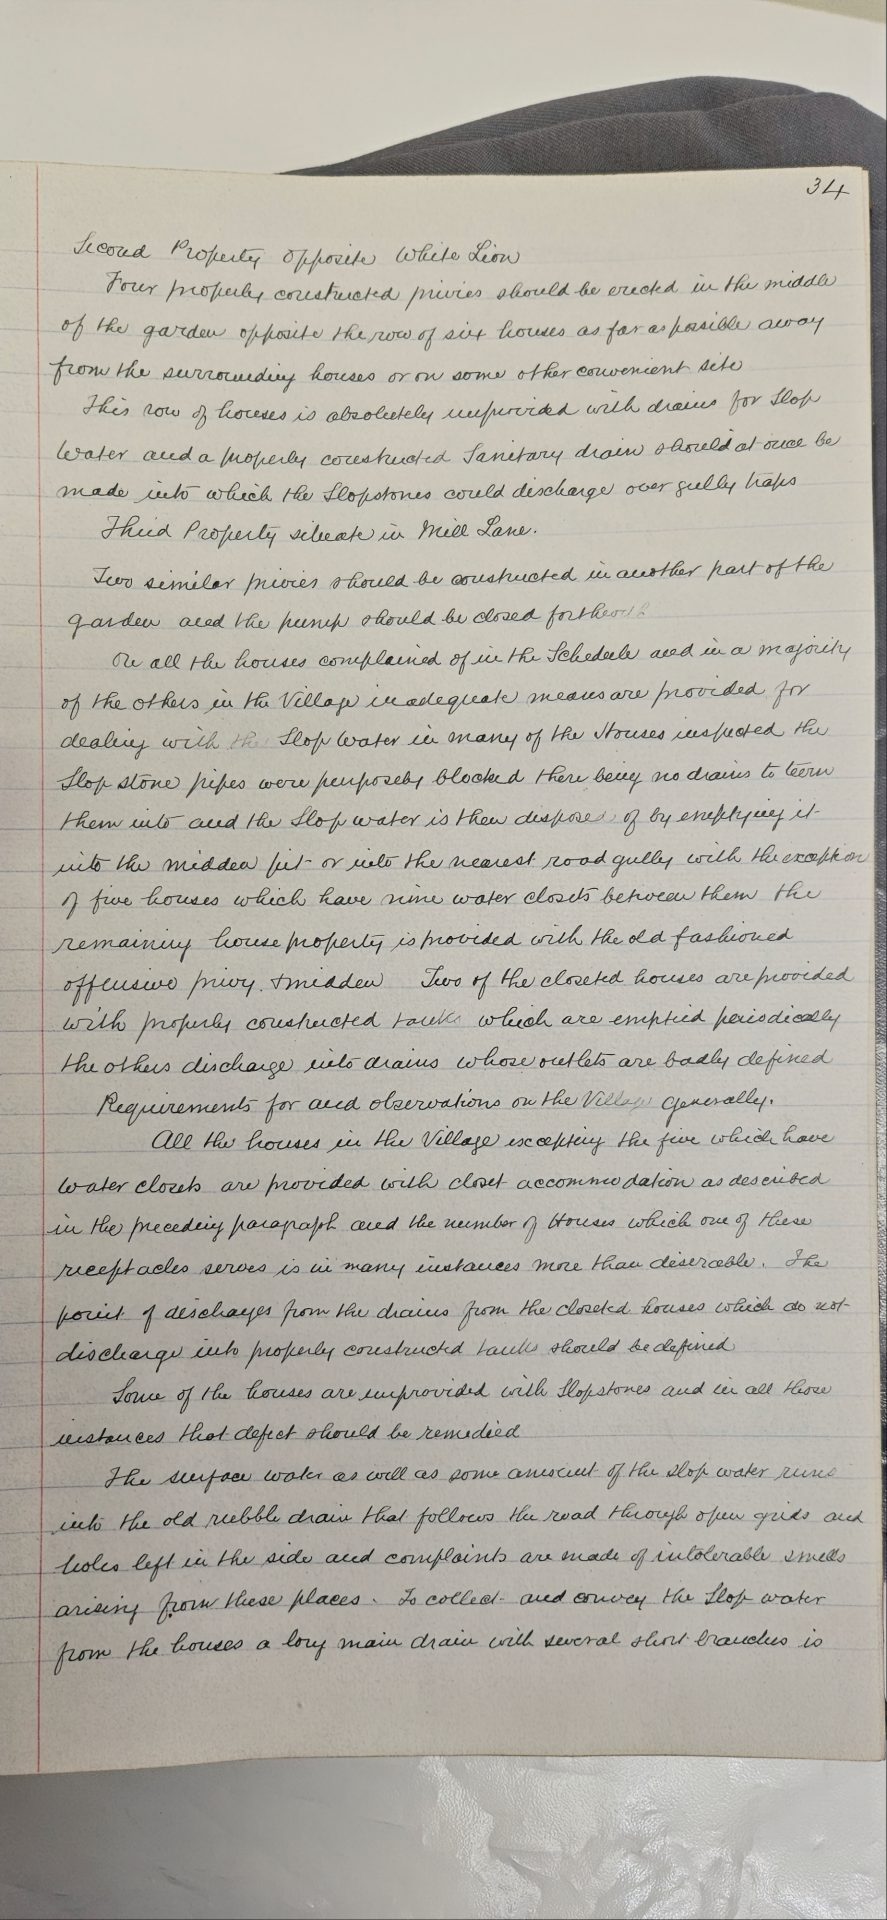 34
Second Property opposite White Lion
Four properly constructed privies should be erected in the middle
of the garden opposite the row of six houses as far as possible away
from the surrounding houses or on some other convenient site
This row of houses is absolutely unprovided with drains for Slop
Water and a properly constructed Sanitary drain should at once be
made into which the Slopstones could discharge over gully traps
Third Property situate in Mill Lane.
Two similar privies should be constructed in another part of the
garden and the pump should be closed forthwith
On all the houses complained of in the Schedule and in a majority
of the others in the Village inadequate means are provided for
dealing with the Slop Water in many of the Houses inspected the
Slop stone pipes were purposely blocked there being no drains to teem
them into and the Slop water is then disposed of by emptying it
into the midden pit or into the nearest road gully with the exception
of five houses which have nine water closets between them the
remaining house property is provided with the old fashioned
offensive privy & midden Two of the closeted houses are provided
with properly constructed tanks which are emptied periodically
the others discharge into drains whose outlets are badly defined
Requirements for and observations on the Village generally.
All the houses in the Village excepting the five which have
Water closets are provided with closet accommodation as described
in the preceding paragraph and the number of Houses which one of these
receptacles serves is in many instances more than desirable. The
point of discharges from the drains from the closeted houses which do not
discharge into properly constructed tanks should be defined
Some of the houses are unprovided with Slopstones and in all those
instances that defect should be remedied
The surface water as well as some amount of the slop water runs
into the old rubble drain that follows the road through open grids and
holes left in the side and complaints are made of intolerable smells
arising from these places. To collect and convey the Slop water
from the houses a long main drain with several short branches is